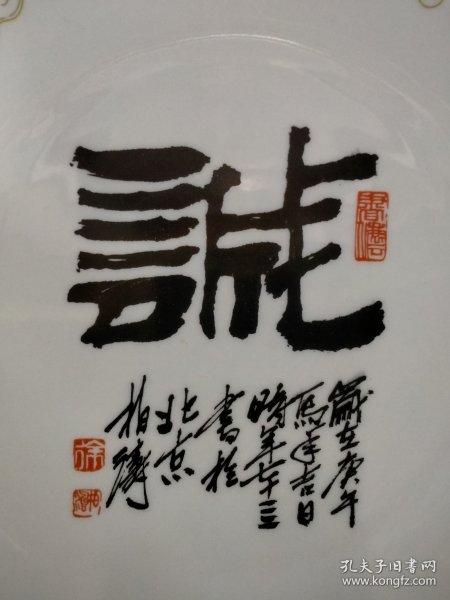 誠
歲在庚午
馬年吉日
時年七十三
書於
北京
柏濤
徐
孔夫子旧书网
www.kongfz.com